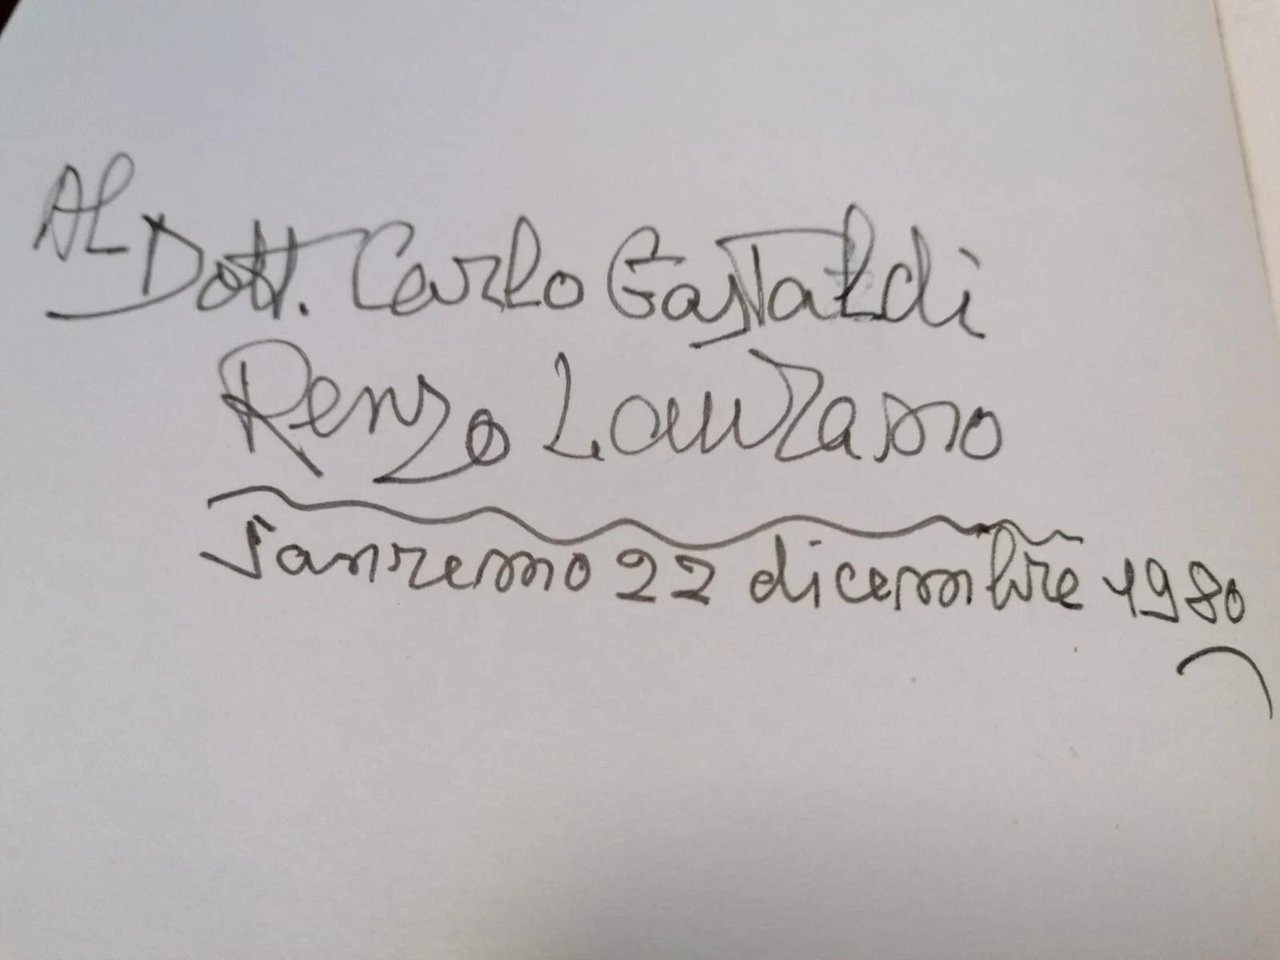 AL Dott. Carlo Gastaldi
Renzo Laurano
Sanremo 22 dicembre 1980